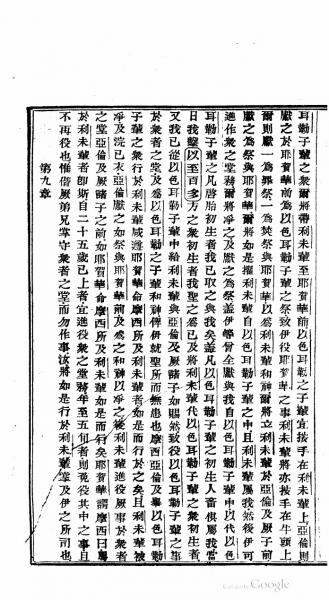 耳勒子輩之衆爾將帶利未輩至耶賀華前以色耳勒之子輩宜按手在利未輩上亞倫則
獻之於耶賀華前爲以色耳勒子輩之祭致伊役耶賀華之事利未輩將亦按手在牛頭上
爾則獻一爲罪祭一爲焚祭與耶賀華以爲利未輩和神爾將立利未輩於亞倫及厥子前
獻之爲祭與耶賀華爾將如是擢利未輩自以色耳勒子輩之中且利未輩屬我然後伊可
進作衆之堂務爾將凈之及獻之爲祭蓋伊等曾全獻與我自以色耳勒子輩中以代以色
耳勒子輩之凡啓胎初生者我已取之與我矣蓋凡以色耳勒子輩之初生人畜俱屬我當
日我擊以至百多方之衆初生者我聖之爲己及將利未輩代以色耳勒子輩之衆初生者
又我已從以色耳勒子輩中給利未輩與亞倫及厥諸子如賜然致役以色耳勒子輩之事
於衆者之堂及爲以色耳勒子輩和神俾伊就聖所而無患也摩西亞倫及以色耳勒
子輩之衆行於利未輩咸遵耶賀華命摩西所及利未輩者如是而行於之矣且利未輩被
凈及浣己衣亞倫獻之如祭與耶賀華前及爲之和神以凈之後利未輩進役厥事於衆者
之堂亞倫及厥諸子之前如耶賀華命摩西所及利未輩如是而行矣耶賀華謂摩西曰屬
於利未輩者卽斯自二十五歲已上者宜進役衆之堂務年至五旬者則免役其中之事且
不再役也惟偕厥弟兄掌守衆者之堂而勿作事汝將如是行於利未輩及伊之所司也
第九章
Google